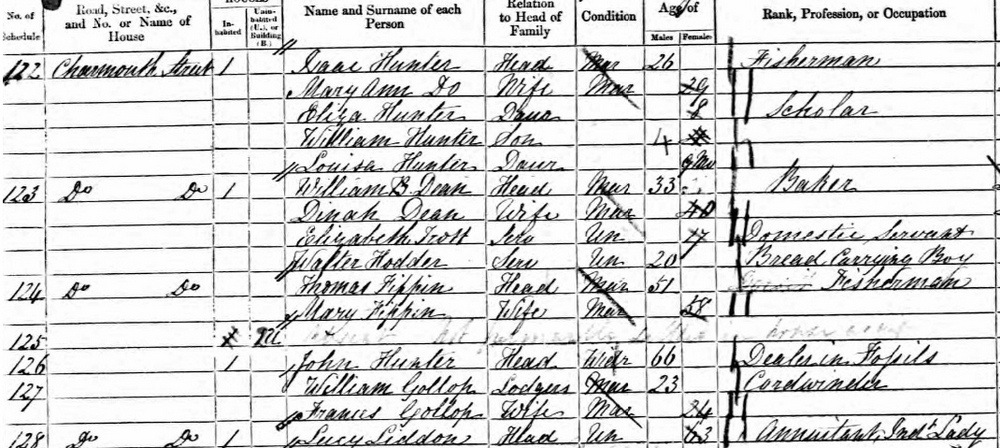 No. of Schedule Road, Street, &c., and No. or Name of House Inhabited Uninhabited (U.), or Building (B.) Name and Surname of each Person Relation to Head of Family Condition Age of Males Females Rank, Profession, or Occupation
122 Charmouth Street 1 Isaac Hunter Head Mar 26 Fisherman
Mary Ann Do Wife Mar 29
Eliza Hunter Daur 8 Scholar
William Hunter Son 4
Louisa Hunter Daur 9 Mo
123 Do Do 1 William B. Dean Head Mar 33 Baker
Dinah Dean Wife Mar 40
Elizabeth Trott Serv Un 17 Domestic Servant
Walter Hodder Serv Un 20 Bread Carrying Boy
124 Do Do Thomas Fippin Head Mar 51 Fisherman
Mary Fippin Wife Mar 58
125
126 1 John Hunter Head Widr 66 Dealer in Fossils
127 William Gollop Lodgers Mar 23 Cordwinder
Frances Gollop Wife Mar 24
128 Do Do 1 Lucy Liddon Head Un 63 Annuitant Lady